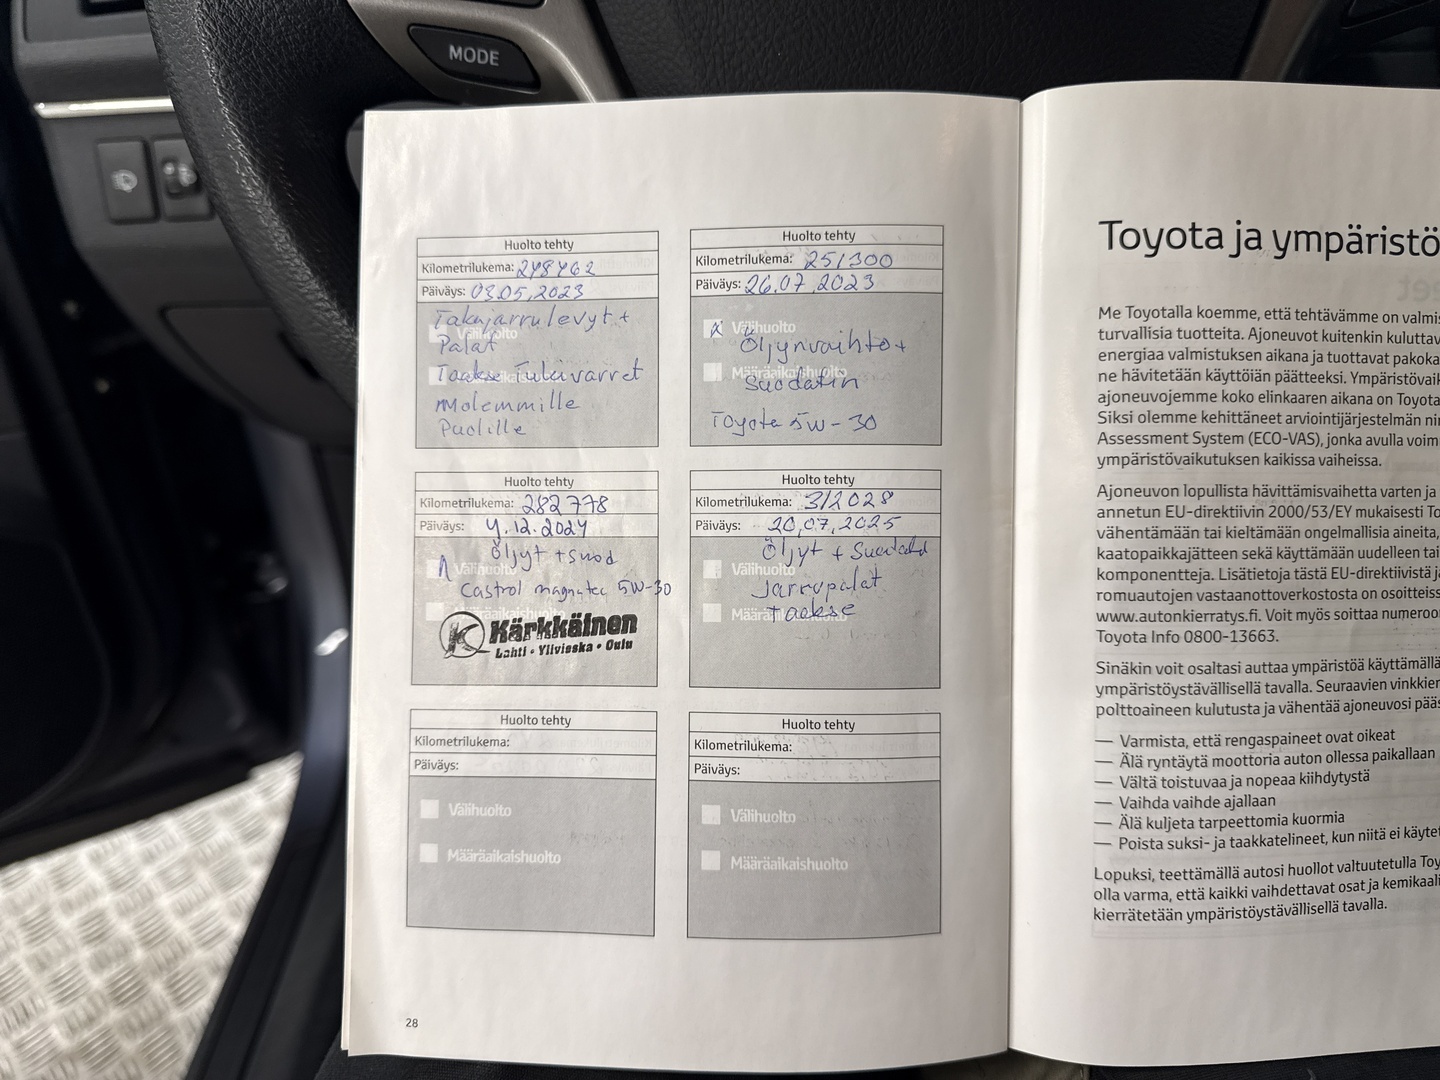 MODE
Huolto tehty
Kilometrilukema: 248462
Päiväys: 03.05.2023
Takajarrulevyt +
Välihuolto
Palat
Taakse Tukivarret
Molemmille
Puolille
Huolto tehty
Kilometrilukema: 251300
Päiväys: 26.07.2023
x Välihuolto
Öljynvaihto +
Määräaikaishuolto
Suodatin
Toyota 5W-30
Huolto tehty
Kilometrilukema: 282778
Päiväys: 4.12.2024
Öljyt + suod
Välihuolto
Castrol magnatec 5W-30
Määräaikaishuolto
Kärkkäinen
Lahti • Ylivieska • Oulu
Huolto tehty
Kilometrilukema: 312028
Päiväys: 20.07.2025
Öljyt +
Välihuolto
Jarrupalat
Taakse
Huolto tehty
Kilometrilukema:
Päiväys:
Välihuolto
Määräaikaishuolto
Huolto tehty
Kilometrilukema:
Päiväys:
Välihuolto
Määräaikaishuolto
28
Toyota ja ympäristö
Me Toyotalla koemme, että tehtävämme on
turvallisia tuotteita. Ajoneuvot kuitenkin
energiaa valmistuksen aikana ja tuottavat
ne hävitetään käyttöiän päätteeksi.
ajoneuvojemme koko elinkaaren aikana on Toyota
Siksi olemme kehittäneet arviointijärjestelmän
Assessment System (ECO-VAS), jonka avulla
ympäristövaikutuksen kaikissa vaiheissa.
Ajoneuvon lopullista hävittämisvaihetta varten ja
annetun EU-direktiivin 2000/53/EY mukaisesti
vähentämään tai kieltämään ongelmallisia aineita,
kaatopaikkajätteen sekä käyttämään uudelleen tai
komponentteja. Lisätietoja tästä EU-direktiivistä
romuautojen vastaanottoverkostosta on
www.autonkierratys.fi. Voit myös soittaa
Toyota Info 0800-13663.
Sinäkin voit osaltasi auttaa ympäristöä käyttämällä
ympäristöystävällisellä tavalla. Seuraavien
polttoaineen kulutusta ja vähentää ajoneuvosi
— Varmista, että rengaspaineet ovat oikeat
— Älä ryntäytä moottoria auton ollessa paikallaan
— Vältä toistuvaa ja nopeaa kiihdytystä
— Vaihda vaihde ajallaan
— Älä kuljeta tarpeettomia kuormia
— Poista suksi- ja taakkatelineet, kun niitä ei
Lopuksi, teettämällä autosi huollot valtuutetulla
olla varma, että kaikki vaihdettavat osat ja
kierrätetään ympäristöystävällisellä tavalla.